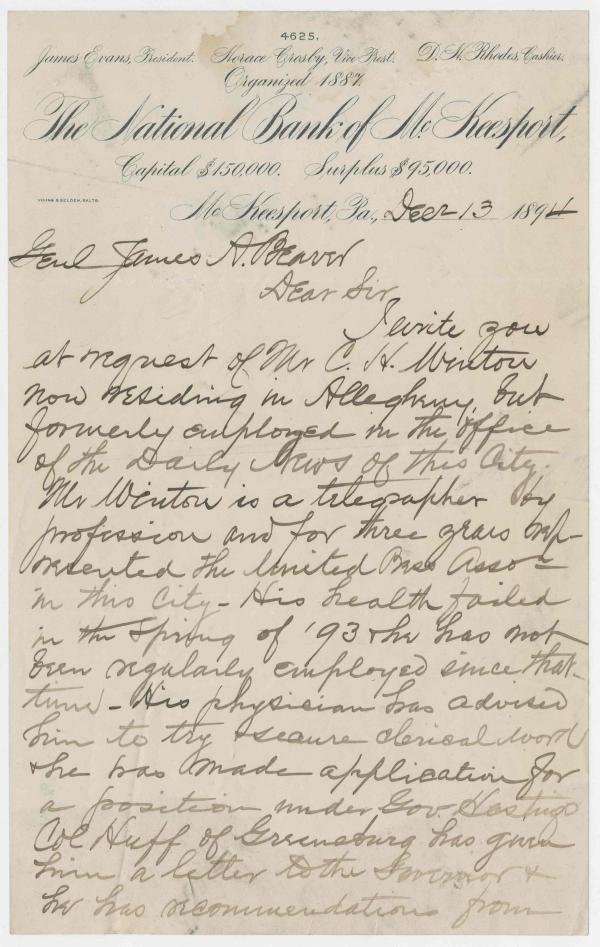 4625.
James Evans, President. Horace Crosby, Vice Prest. D. H. Rhodes, Cashier.
Organized 1887.
The National Bank of Mc Keesport,
Capital $150,000. Surplus $95,000.
YOUNG & SELDEN, BALTO.
Mc Keesport, Pa., Decr 13 1894
Genl James A. Beaver
Dear Sir
I write you
at request of Mr C. H. Winton
now residing in Allegheny, but
formerly employed in the office
of the Daily News of this City.
Mr Winton is a telegrapher by
profession and for three years rep-
resented the United Press Asso-
in this City - His health failed
in the Spring of '93 & he has not
been regularly employed since that
time - His physician has advised
him to try & secure clerical work
& he has made application for
a position under Gov. Hastings
Col Huff of Greensburg has given
him a letter to the Governor &
he has recommendations from